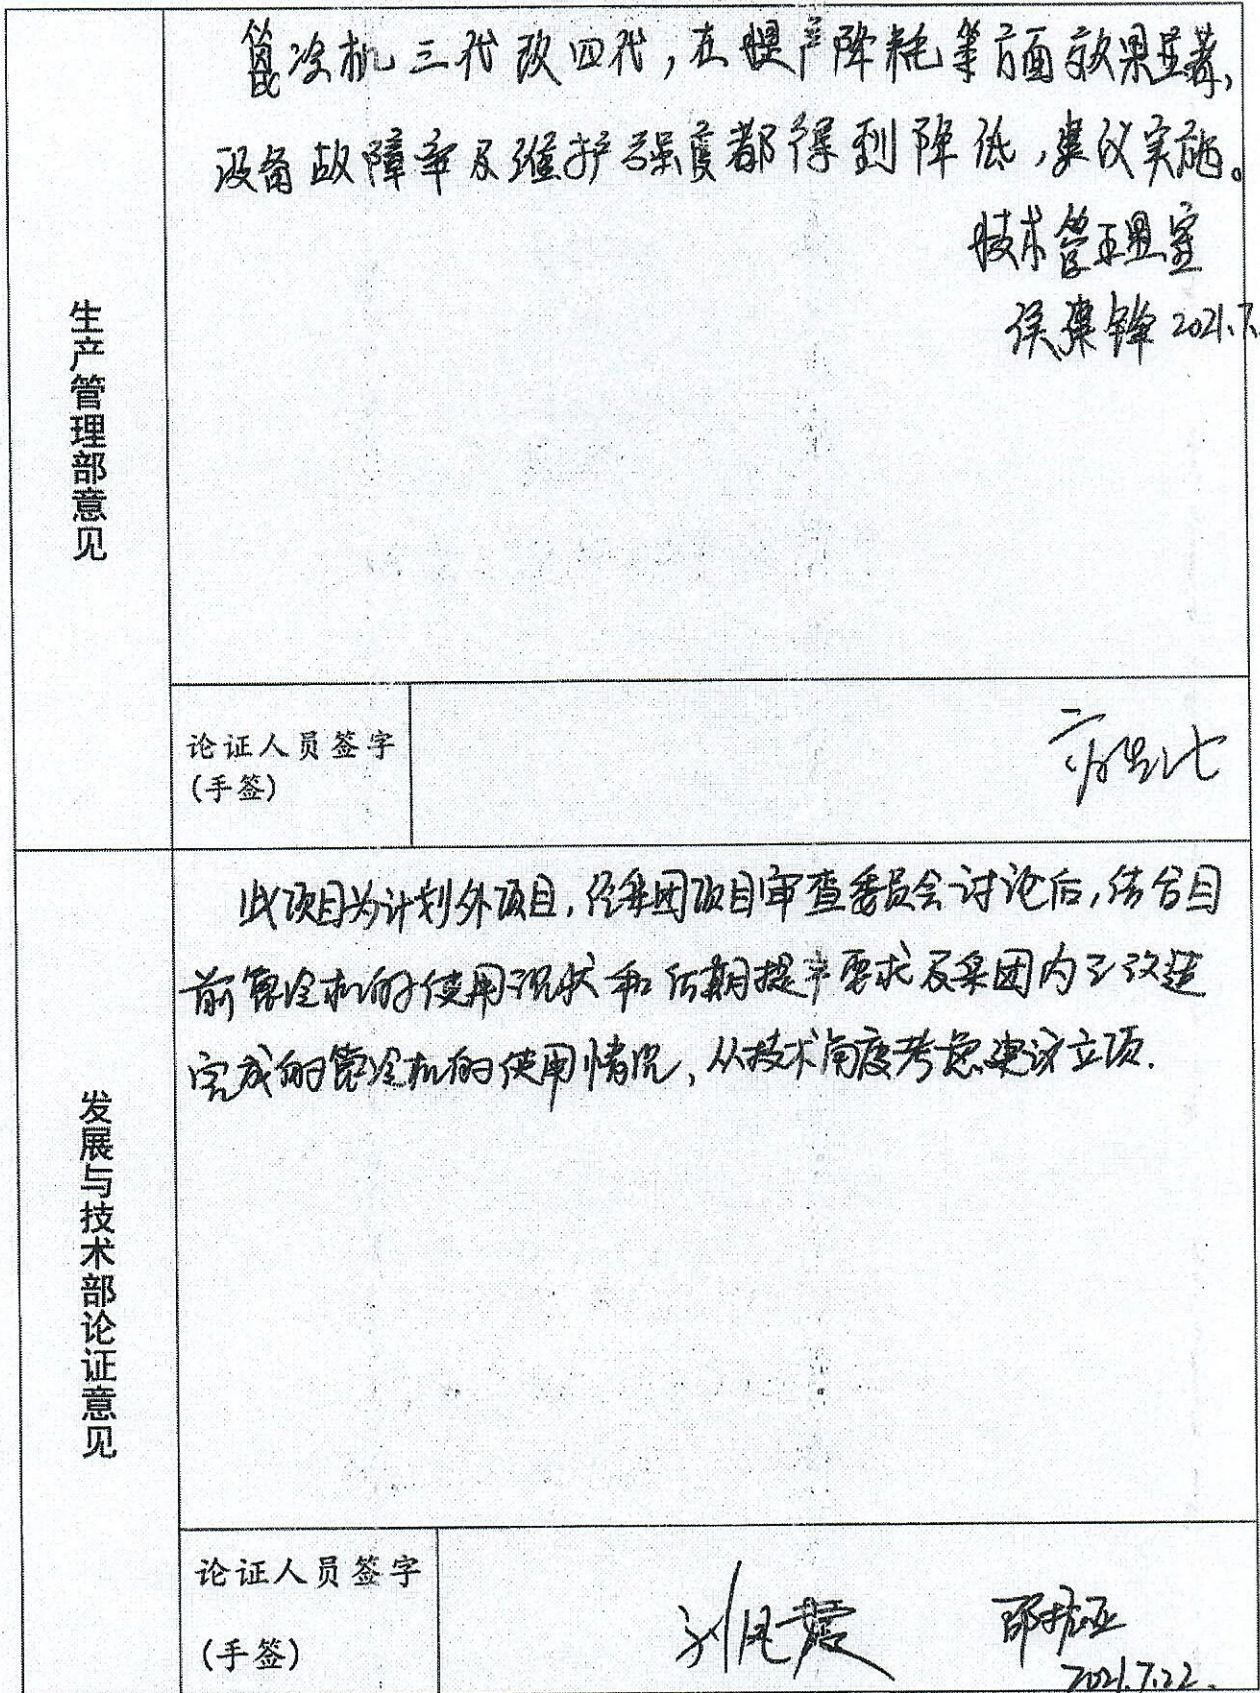 生产管理部意见
篦冷机三代改四代，在提产降耗等方面效果显著，
设备故障率及维护强度都得到降低，建议实施。
技术管理室
侯 锋 2021.7.
论证人员签字
(手签)
发展与技术部论证意见
此项目为计划外项目，经集团项目审查委员会讨论后，结合目
前篦冷机的使用现状和后期提产要求及集团内已改造
完成的篦冷机的使用情况，从技术角度考虑建议立项.
论证人员签字
(手签)
刘凤
2021.7.22.